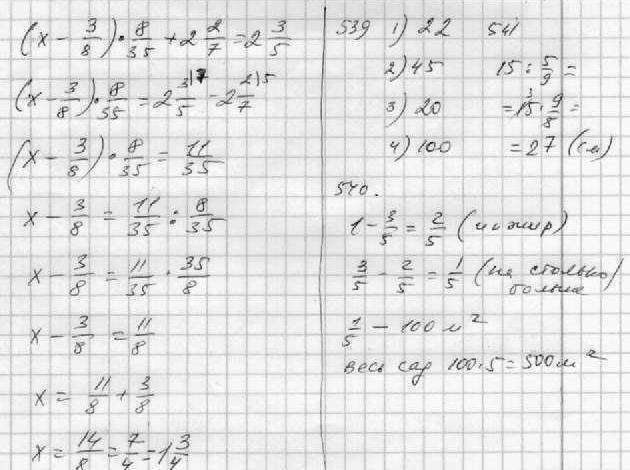 (x - 3/8) · 8/35 + 2 2/7 = 2 3/5
(x - 3/8) · 8/35 = 2 3/5 |7 - 2 2/7 |5
(x - 3/8) · 8/35 = 11/35
x - 3/8 = 11/35 : 8/35
x - 3/8 = 11/35 · 35/8
x - 3/8 = 11/8
x = 11/8 + 3/8
x = 14/8 = 7/4 = 1 3/4
539 1) 22
2) 45
3) 20
4) 100
541
15 : 5/9 =
= 15 3 · 9/8 =
= 27 (см)
540.
1 - 3/5 = 2/5 (инжир)
3/5 - 2/5 = 1/5 (на столько
больше)
1/5 — 100 м²
весь сад 100·5 = 500 м²